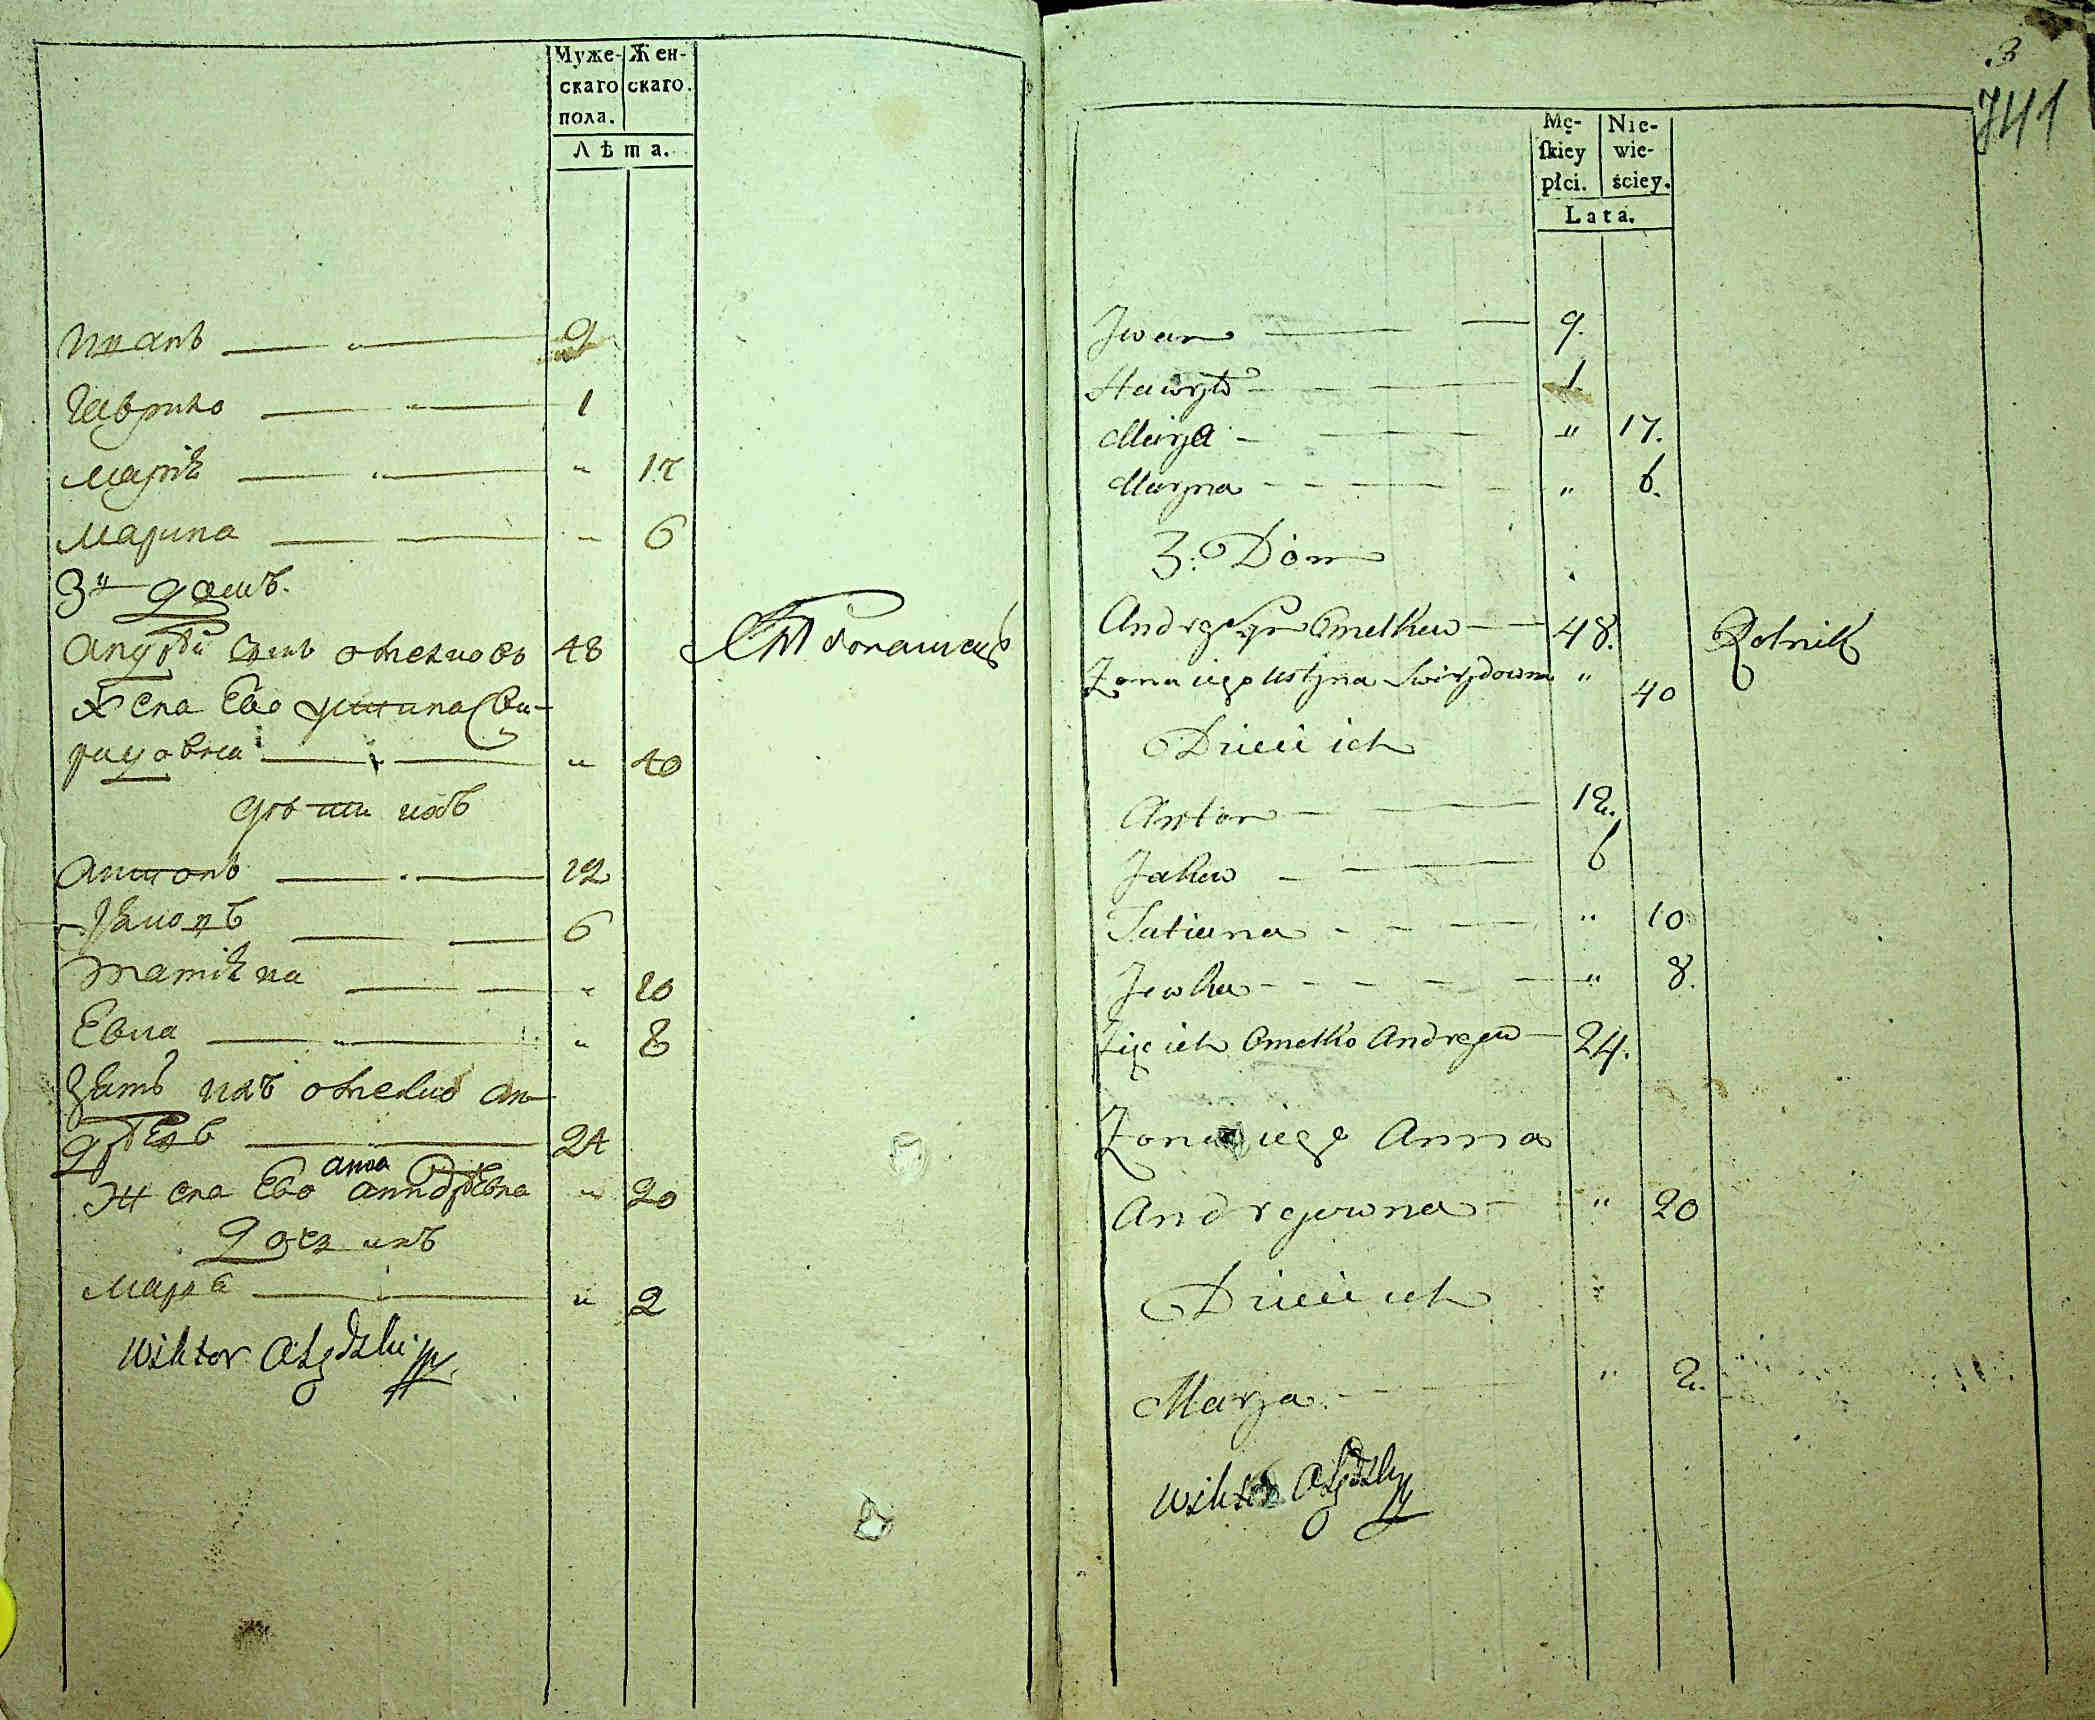 Муже-
скаго
пола.
Жен-
скаго.
Лѣта.
Иванъ 9
Гаврило 1
Марія " 17
Марина " 6
3й домъ.
Андрѣй сынъ Омелковъ 48
Жена Ево Устина Сви-
ридовна " 40
дѣти ихъ
Антонъ 12
Яковъ 6
Татіяна " 10
Евка " 8
Зять ихъ Омелко Ан-
дрѣевъ 24
Жена Ево анна Андрѣевна " 20
Дочь ихъ
Маря " 2
Wiktor
3
741
Mę-
ſkiey
płci.
Nie-
wie-
ściey.
Lata.
Jwan 9.
Hawryło 1
Marya " 17.
Maryna " 6.
3. Dóm
Andrzey syn Omelkow 48. Rolnik
Żona iego Ustyna Swirydowna " 40
Dzieci ich
Anton 12.
Jakow 6
Tatiana " 10
Jewka " 8.
Zięć ich Omelko Andrejew 24.
Żona iego Anna
Andrejewna " 20
Dzieci ich
Marya " 2.
Wiktor